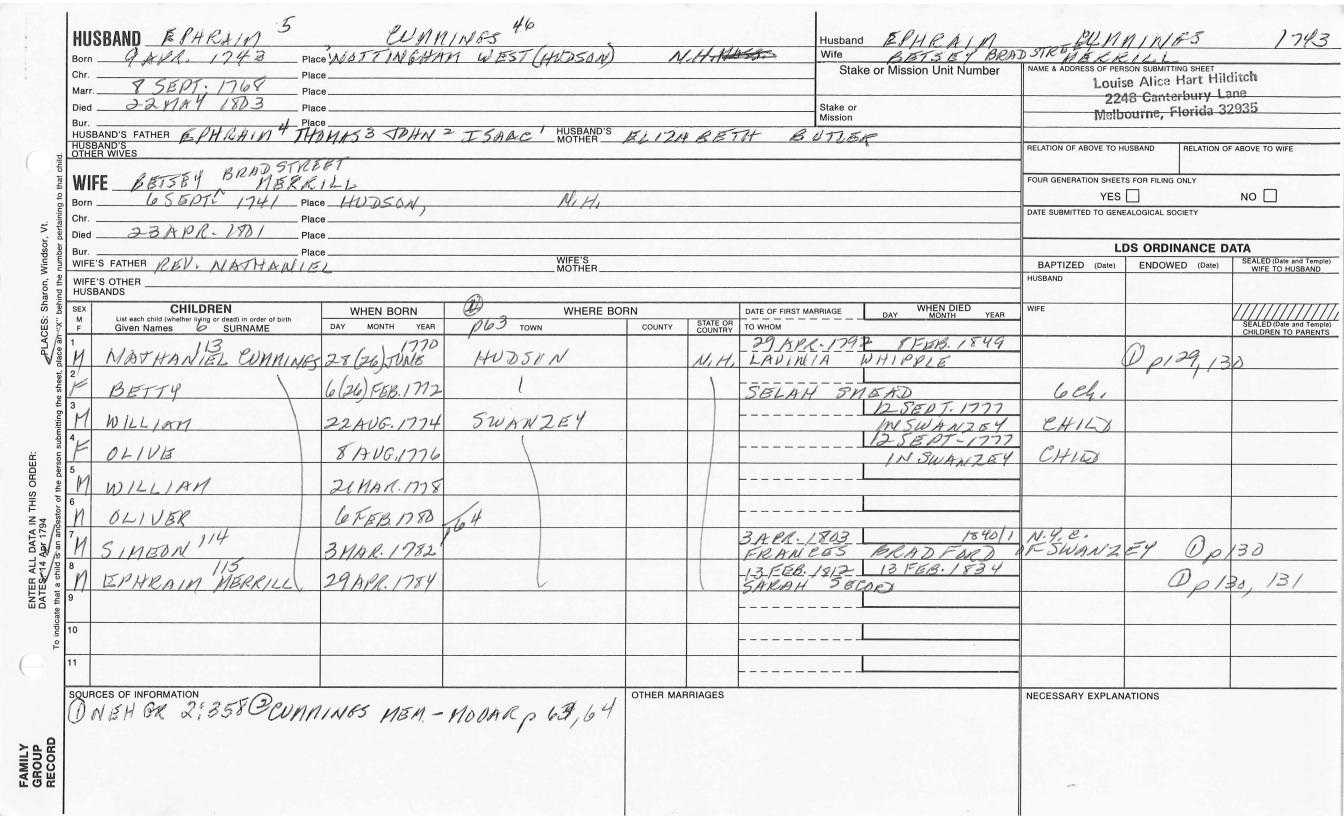 HUSBAND EPHRAIM 5 CUMMINGS 46
Born 9 APR. 1743 Place NOTTINGHAM WEST (HUDSON) N.H. MASS.
Chr. Place
Marr. 8 SEPT. 1768 Place
Died 22 MAY 1803 Place
Bur. Place
HUSBAND'S FATHER EPHRAIM 4 THOMAS 3 JOHN 2 ISAAC 1 HUSBAND'S MOTHER ELIZABETH BUTLER
HUSBAND'S OTHER WIVES
WIFE BETSEY BRADSTREET MERRILL
Born 6 SEPT. 1741 Place HUDSON, N.H.
Chr. Place
Died 23 APR. 1801 Place
Bur. Place
WIFE'S FATHER REV. NATHANIEL WIFE'S MOTHER
WIFE'S OTHER HUSBANDS
Husband EPHRAIM CUMMINGS 1743
Wife BETSEY BRADSTREET MERRILL
Stake or Mission Unit Number
Stake or Mission
NAME & ADDRESS OF PERSON SUBMITTING SHEET
Louise Alice Hart Hilditch
2248 Canterbury Lane
Melbourne, Florida 32935
RELATION OF ABOVE TO HUSBAND RELATION OF ABOVE TO WIFE
FOUR GENERATION SHEETS FOR FILING ONLY
YES NO
DATE SUBMITTED TO GENEALOGICAL SOCIETY
LDS ORDINANCE DATA
BAPTIZED (Date) ENDOWED (Date) SEALED (Date and Temple) WIFE TO HUSBAND
HUSBAND
WIFE
SEALED (Date and Temple) CHILDREN TO PARENTS
SEX M F CHILDREN WHEN BORN WHERE BORN DATE OF FIRST MARRIAGE WHEN DIED
List each child (whether living or dead) in order of birth
Given Names 6 SURNAME DAY MONTH YEAR p63 TOWN COUNTY STATE OR COUNTRY TO WHOM DAY MONTH YEAR
1 M NATHANIEL 113 CUMMINGS 28 (26) JUNE 1770 HUDSON N.H. 29 APR. 1792 8 FEB. 1849 LAVINIA WHIPPLE ① p129, 130
2 F BETTY 6 (26) FEB. 1772 SELAH SMEAD 6 Ch.
3 M WILLIAM 22 AUG. 1774 SWANZEY 12 SEPT. 1777 IN SWANZEY CHILD
4 F OLIVE 8 AUG. 1776 12 SEPT. 1777 IN SWANZEY CHILD
5 M WILLIAM 21 MAR. 1778
6 M OLIVER 6 FEB. 1780 p64
7 M SIMEON 114 3 MAR. 1782 3 APR. 1803 1840/1 N.Y.C. FRANCES BRADFORD OF SWANZEY ① p130
8 M EPHRAIM MERRILL 115 29 APR. 1784 13 FEB. 1812 13 FEB. 1834 SARAH SECORD ① p130, 131
9
10
11
SOURCES OF INFORMATION
① NEH GR 2:358 ② CUMMINGS MEM. - MOOAR p 63, 64
OTHER MARRIAGES
NECESSARY EXPLANATIONS
ENTER ALL DATA IN THIS ORDER:
DATES: 14 Apr 1794
PLACES: Sharon, Windsor, Vt.
To indicate that a child is an ancestor of the person submitting the sheet, place an "X" behind the number pertaining to that child.
FAMILY
GROUP
RECORD